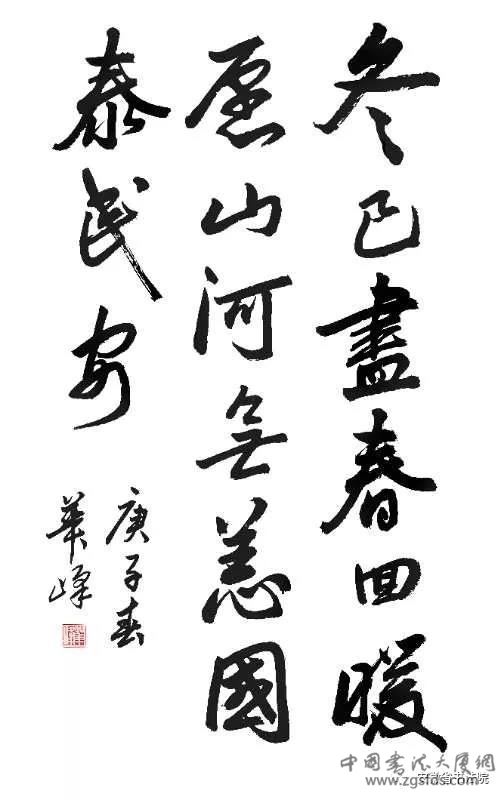 冬已盡春回暖
愿山河無恙國
泰民安
庚子春
華峰
中國書法大厦網
www.zgsfds.com